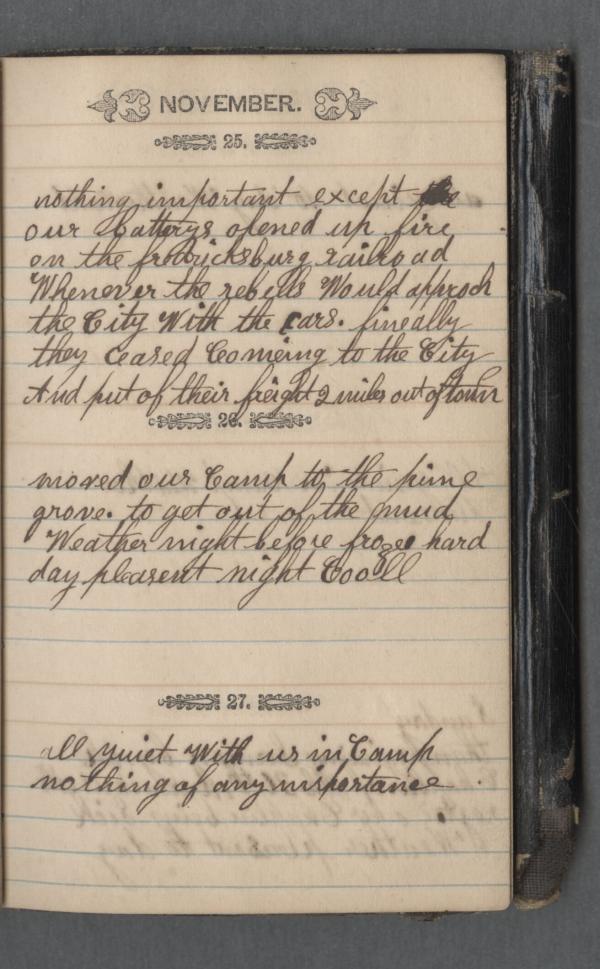 NOVEMBER.
25.
nothing important except the
our batterys opened up fire
on the fredricksburg railroad
Whenever the rebells Would approch
the City With the cars. fineally
they ceased Comeing to the City
And put of their freight 2 miles out of town
26.
moved our Camp to the pine
grove. to get out of the mud
Weather night before froze hard
day pleasent night Cooll
27.
all quiet With us in Camp
nothing of any importance.